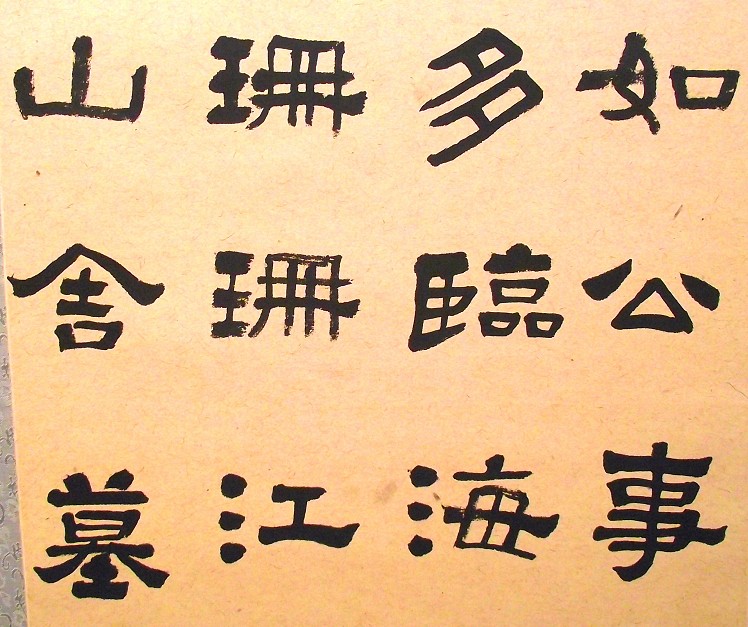 如公事
多臨海
珊珊江
山舍墓